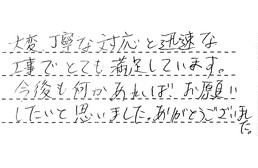 大変丁寧な対応と迅速な
工事でとても満足しています。
今後も何かあれば お願い
したいと思いました。ありがとうございました。